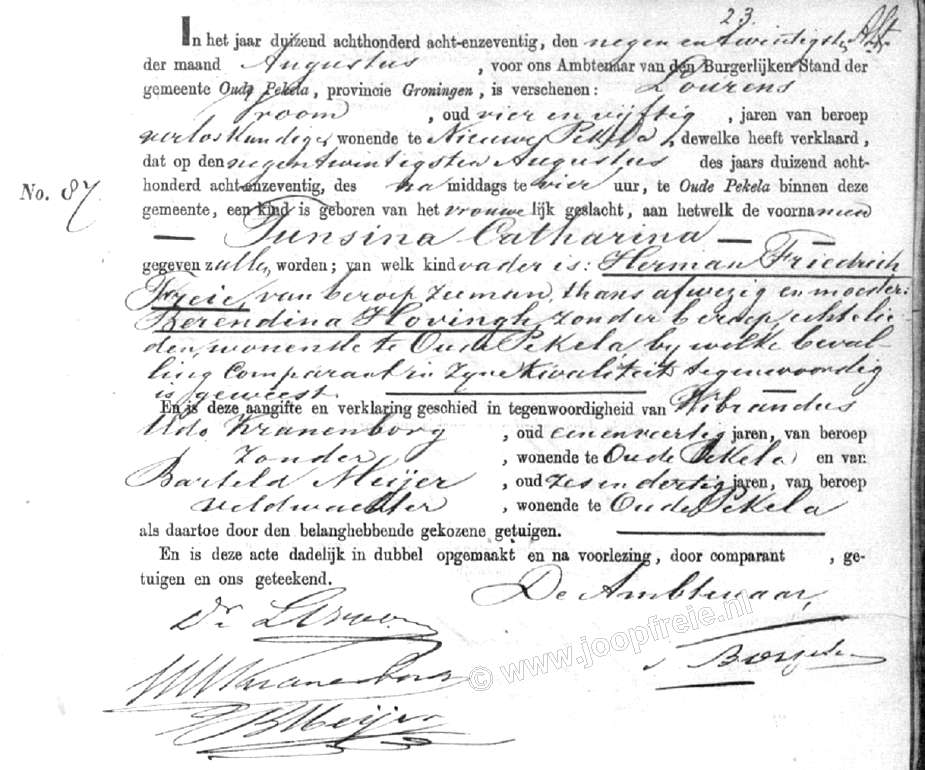 23.
In het jaar duizend achthonderd acht-enzeventig, den negen en twintigste
der maand Augustus , voor ons Ambtenaar van den Burgerlijken Stand der
gemeente Oude Pekela, provincie Groningen, is verschenen: Lourens
Troom , oud vier en vijftig , jaren van beroep
verloskundige, wonende te Nieuwe Pekela, dewelke heeft verklaard,
dat op den negenentwintigsten Augustus des jaars duizend acht-
No. 87. honderd acht-enzeventig, des na middags te vier uur, te Oude Pekela binnen deze
gemeente, een kind is geboren van het vrouwelijk geslacht, aan hetwelk de voornamen
— Tunsina Catharina — —
gegeven zullen worden; van welk kind vader is: Herman Friedrich
Freie, van beroep zeeman, thans afwezig en moeder:
Berendina Hovingh, zonder beroep, echtelie-
den, wonende te Oude Pekela by welke beval-
ling Comparant in zyne kwaliteit tegenwoordig
is geweest.
En is deze aangifte en verklaring geschied in tegenwoordigheid van Wibrandus
Udo Kranenborg , oud eenenveertig jaren, van beroep
zonder , wonende te Oude Pekela en van
Barteld Meijer , oud zesendertig jaren, van beroep
veldwachter , wonende te Oude Pekela
als daartoe door den belanghebbende gekozene getuigen.
En is deze acte dadelijk in dubbel opgemaakt en na voorlezing, door comparant , ge-
tuigen en ons geteekend.
De Ambtenaar,
Dr L
WU Kranenborg
B Meijer
© www.joopfreie.nl